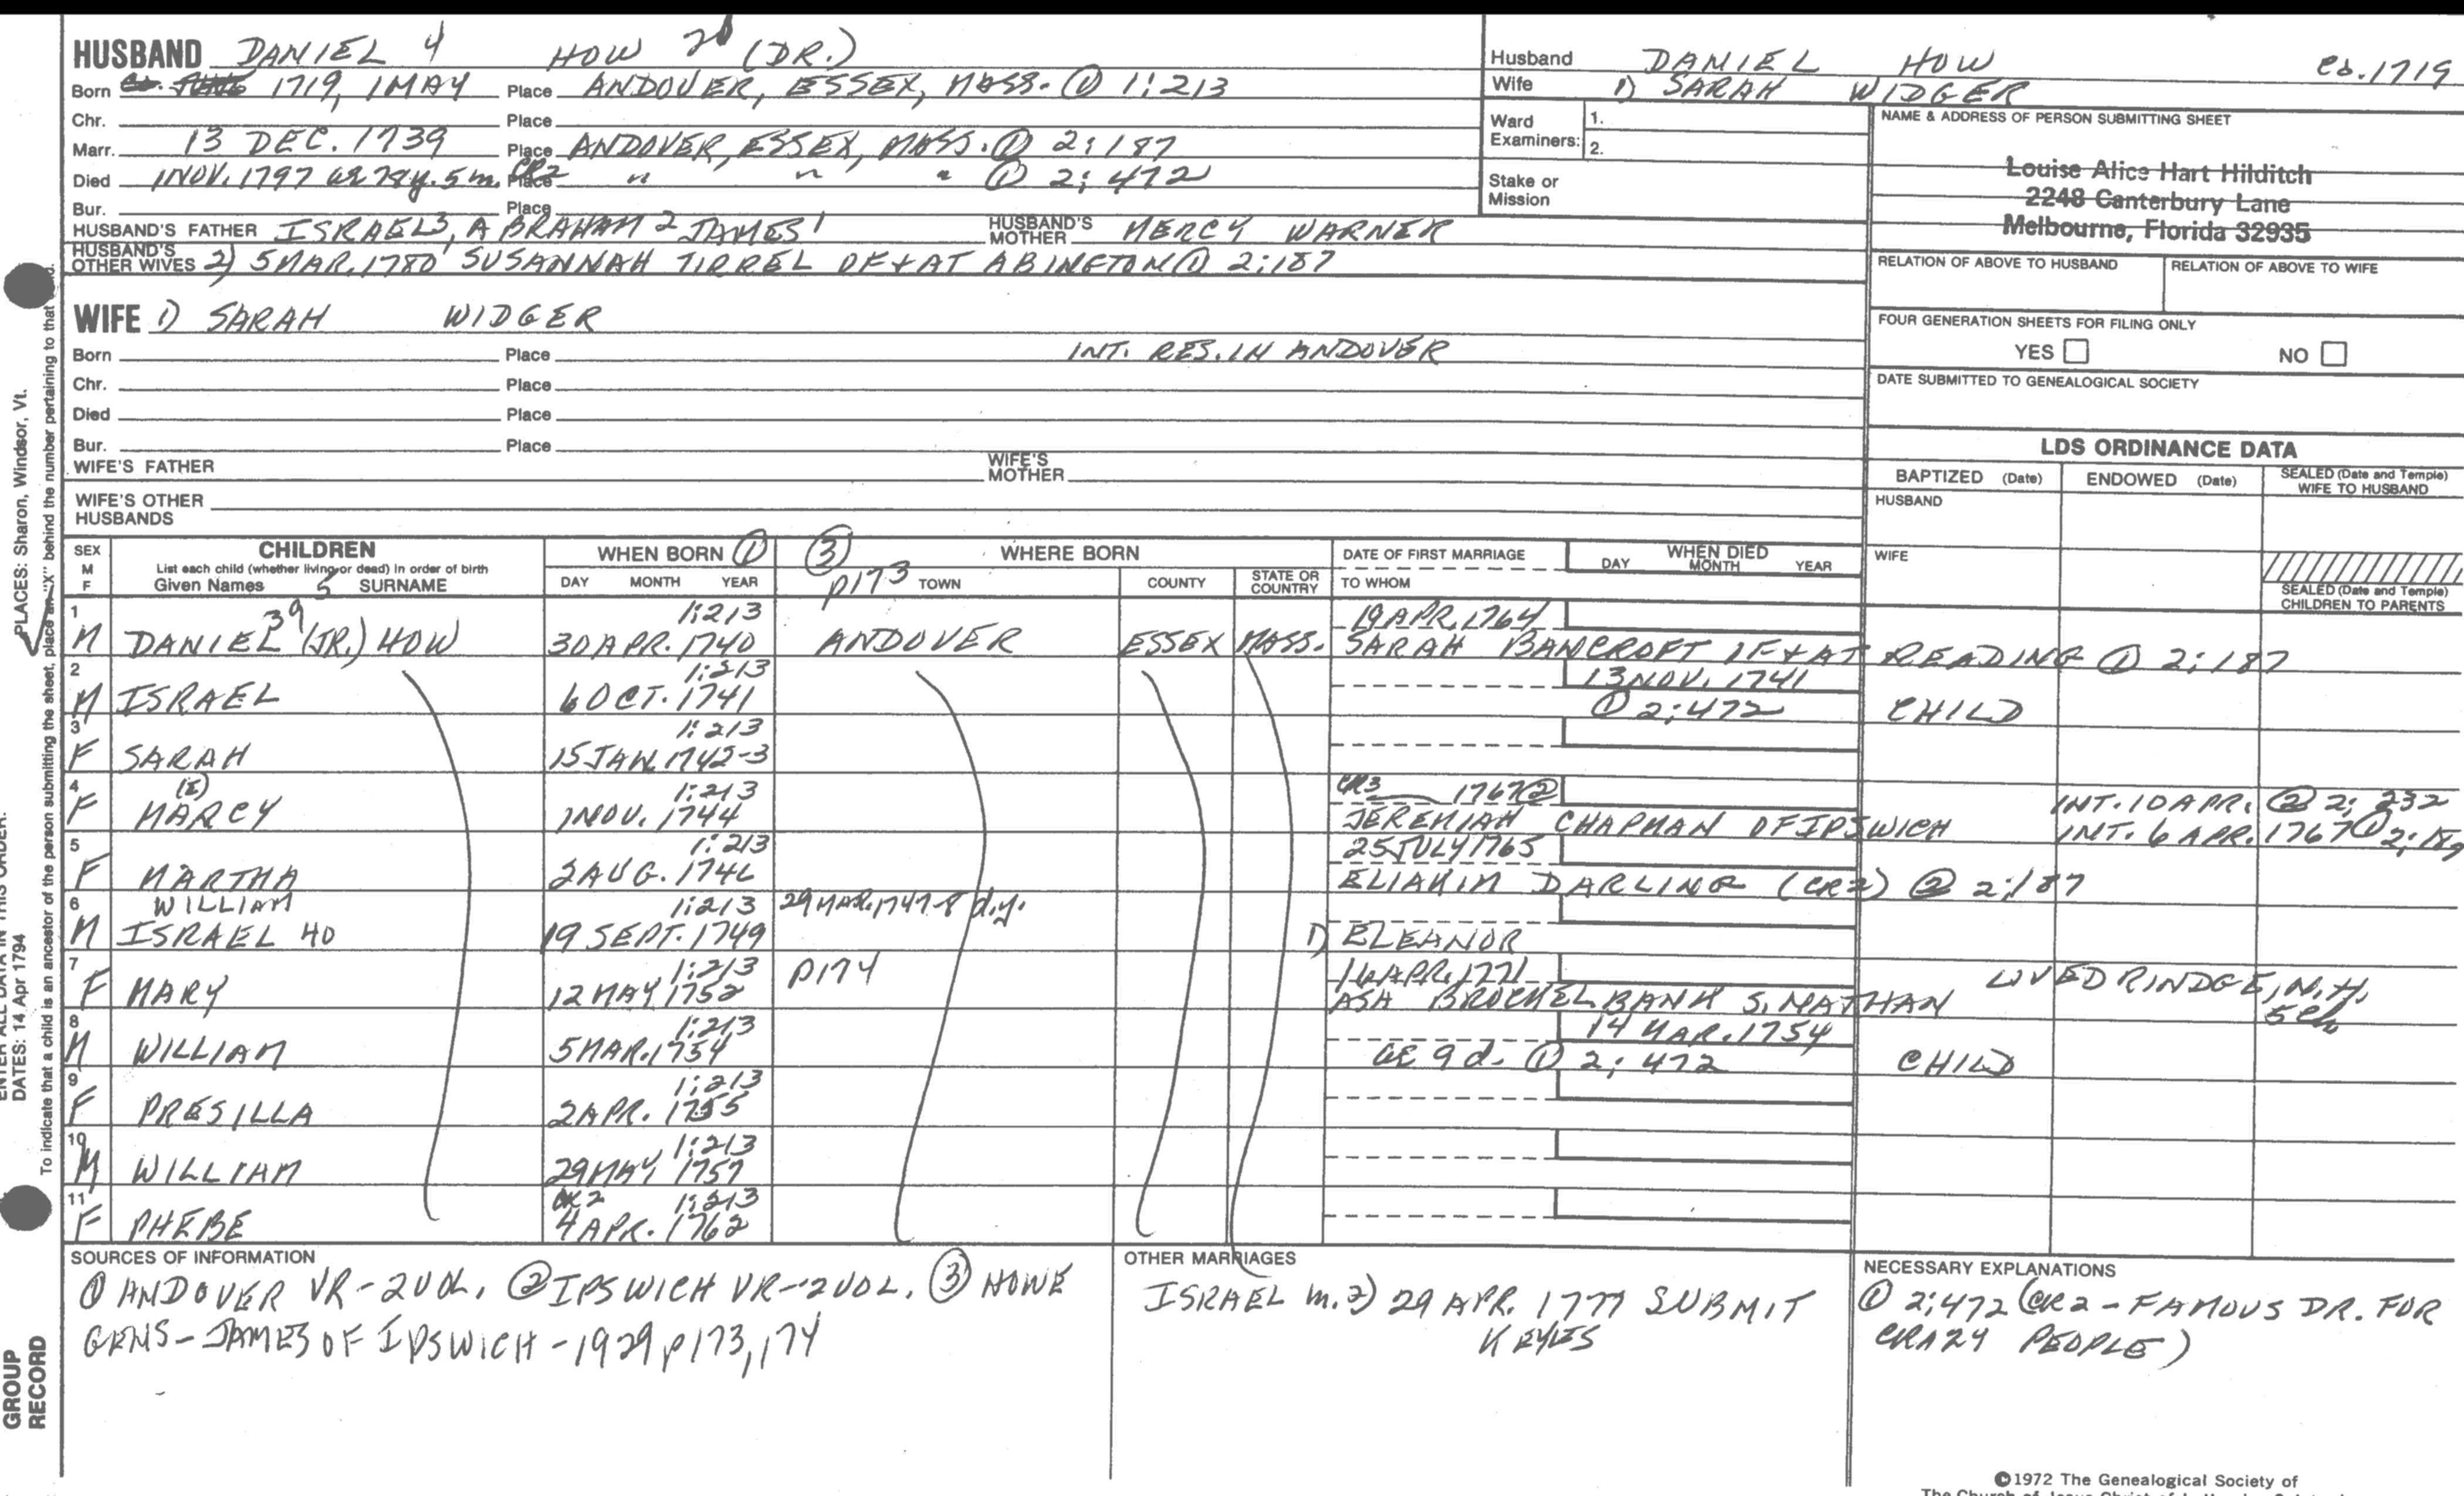 HUSBAND DANIEL 4 HOW 20 (DR.)
Born 1719, 1 MAY Place ANDOVER, ESSEX, MASS. ① 1:213
Chr. Place
Marr. 13 DEC. 1739 Place ANDOVER, ESSEX, MASS. ① 2:187
Died 1 NOV. 1797 ae 78y. 5m. CR2 Place " " " ① 2:472
Bur. Place
HUSBAND'S FATHER ISRAEL 3, ABRAHAM 2 JAMES 1 HUSBAND'S MOTHER MERCY WARNER
HUSBAND'S OTHER WIVES 2) 5 MAR. 1780 SUSANNAH TIRREL OF + AT ABINGTON ① 2:187
WIFE 1) SARAH WIDGER
Born Place INT. RES. IN ANDOVER
Chr. Place
Died Place
Bur. Place
WIFE'S FATHER WIFE'S MOTHER
WIFE'S OTHER HUSBANDS
Husband DANIEL HOW cb. 1719
Wife 1) SARAH WIDGER
Ward Examiners: 1. 2.
Stake or Mission
NAME & ADDRESS OF PERSON SUBMITTING SHEET
Louise Alice Hart Hilditch
2248 Canterbury Lane
Melbourne, Florida 32935
RELATION OF ABOVE TO HUSBAND RELATION OF ABOVE TO WIFE
FOUR GENERATION SHEETS FOR FILING ONLY
YES NO
DATE SUBMITTED TO GENEALOGICAL SOCIETY
LDS ORDINANCE DATA
BAPTIZED (Date) ENDOWED (Date) SEALED (Date and Temple) WIFE TO HUSBAND
HUSBAND
WIFE
SEALED (Date and Temple) CHILDREN TO PARENTS
SEX M F CHILDREN WHEN BORN ① ③ WHERE BORN DATE OF FIRST MARRIAGE WHEN DIED
List each child (whether living or dead) in order of birth
Given Names 5 SURNAME DAY MONTH YEAR p173 TOWN COUNTY STATE OR COUNTRY TO WHOM DAY MONTH YEAR
1 39 1:213 19 APR. 1764
M DANIEL (JR.) HOW 30 APR. 1740 ANDOVER ESSEX MASS. SARAH BANCROFT OF + AT READING ① 2:187
2 1:213 13 NOV. 1741
M ISRAEL 6 OCT. 1741 ① 2:472 CHILD
3 1:213
F SARAH 15 JAN. 1742-3
4 (E) 1:213 CR3 1767 ② INT. 10 APR. ② 2:232
F MARCY 1 NOV. 1744 JEREMIAH CHAPMAN OF IPSWICH INT. 6 APR. 1767 ① 2:187
5 1:213 25 JULY 1765
F MARTHA 2 AUG. 1746 ELIAKIM DARLING (CR2) ② 2:187
6 WILLIAM 1:213 29 MAR. 1747-8 d.y.
M ISRAEL 40 19 SEPT. 1749 1) ELEANOR
7 1:213 p174 16 APR. 1771 LIVED RINDGE, N.H.
F MARY 12 MAY 1752 ASA BROCKELBANK S. NATHAN 5 ch
8 1:213 14 MAR. 1754
M WILLIAM 5 MAR. 1754 ae 9 d. ① 2:472 CHILD
9 1:213
F PRESILLA 2 APR. 1755
10 1:213
M WILLIAM 29 MAY 1757
11 CR2 1:213
F PHEBE 4 APR. 1762
SOURCES OF INFORMATION
① ANDOVER VR-2 VOL. ② IPSWICH VR-2 VOL. ③ HOWE
GENS-JAMES OF IPSWICH-1929 p173,174
OTHER MARRIAGES
ISRAEL m. 2) 29 APR. 1777 SUBMIT
KEYES
NECESSARY EXPLANATIONS
① 2:472 (CR2-FAMOUS DR. FOR
CRAZY PEOPLE)
PLACES: Sharon, Windsor, Vt.
DATES: 14 Apr 1794
ENTER ALL DATA IN THIS ORDER:
To indicate that a child is an ancestor of the person submitting the sheet, place an "X" behind the number pertaining to that
GROUP
RECORD
©1972 The Genealogical Society of